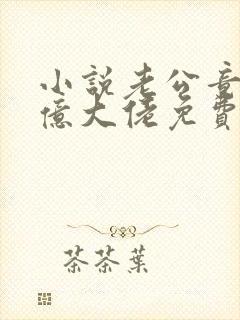 小說老公竟
億大佬免費
茶茶葉